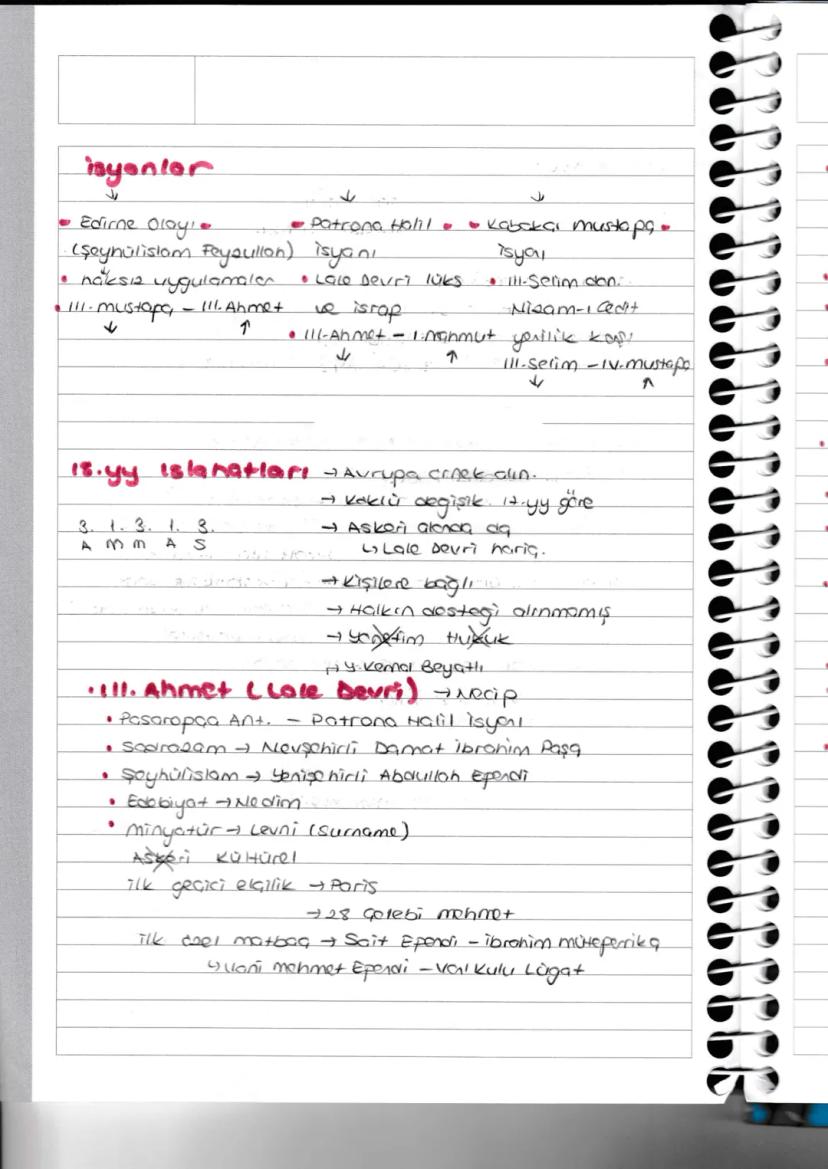 isyanlar
↓ ↓ ↓
• Edirne Olayı • • Patrona Halil • • Kabakçı Mustafa •
(Şeyhülislam Feyzullah) isyanı isyaı
• haksız uygulamalar • Lale Devri lüks • III-Selim dön.
• III-mustafa - III.Ahmet ve israf Nizam-ı Cedit
↓ ↑ • III-Ahmet - I.mahmut yenilik karşı
↓ ↑ III-Selim - IV.mustafa
↓ ↑
18.yy ıslahatları → Avrupa örnek alın.
→ Köklü değişik. 17.yy göre
3. 1. 3. 1. 3. → Askeri alanda da
A M M A S ↳ Lale Devri hariç.
→ Kişilere bağlı
→ Halkın desteği alınmamış
→ Yönetim Hukuk
→ Y.Kemal Beyatlı
• III. Ahmet (Lale Devri) → Necip
• Pasarofça Ant. - Patrona Halil isyaı
• Sadrazam → Nevşehirli Damat İbrahim Paşa
• Şeyhülislam → Yenişehirli Abdullah Efendi
• Edebiyat → Nedim
• Minyatür → Levni (Surname)
Askeri Kültürel
ilk geçici elçilik → Paris
→ 28 Çelebi mehmet
ilk özel matbaa → Sait Efendi - ibrahim müteferrika
↳ Vani mehmet Efendi - Van kulu Lügat